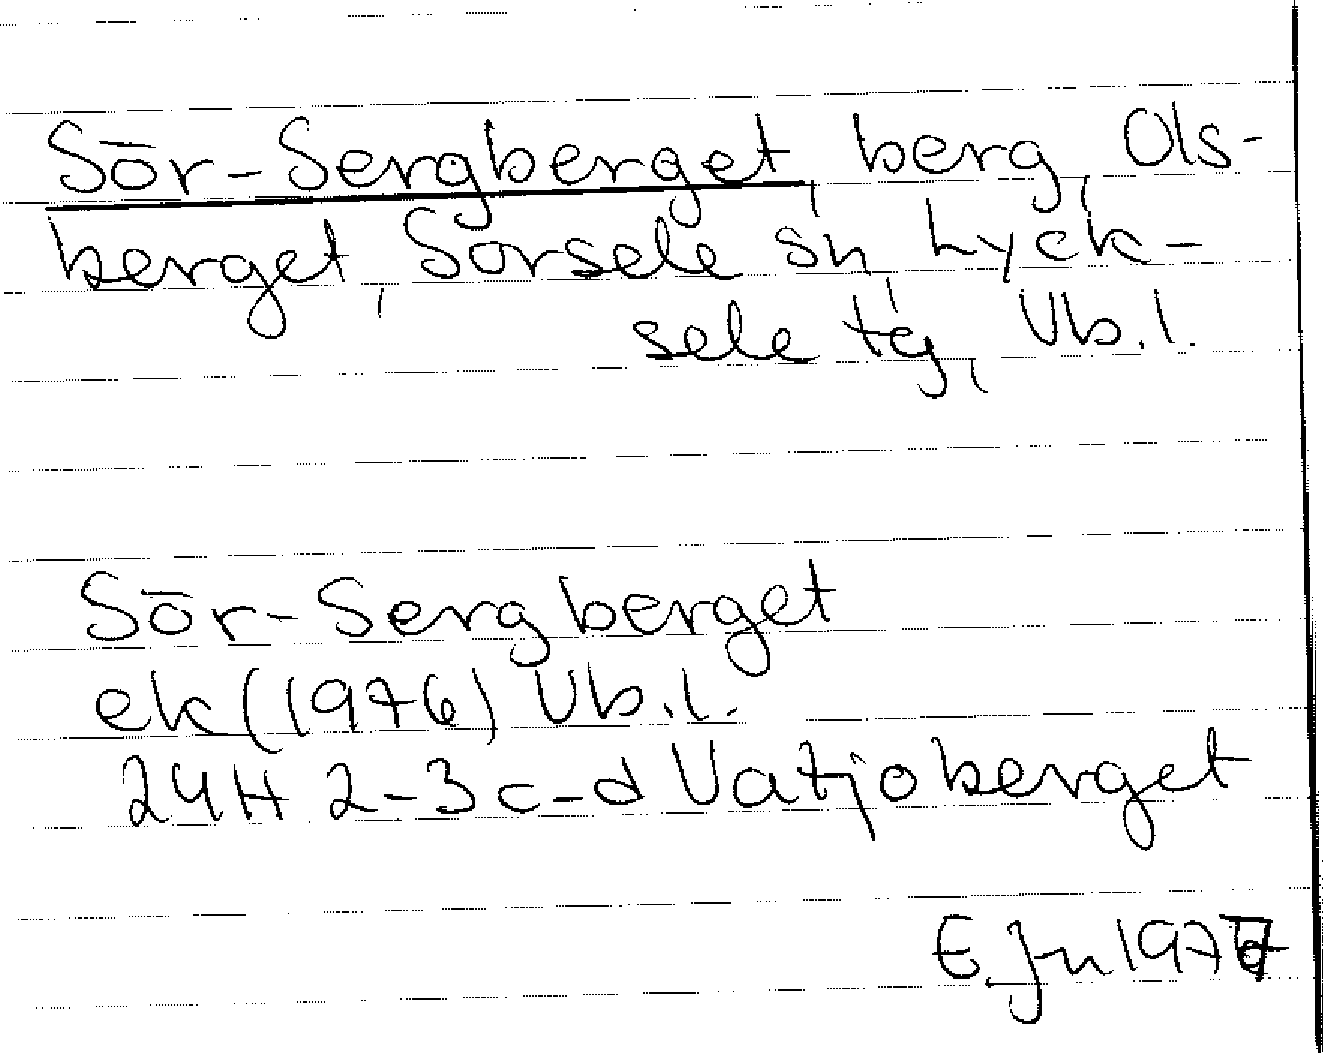 Sör-Sergberget, berg, Ols-
berget, Sorsele sn, Lyck-
sele tg, Vb.l.
Sör-Sergberget
ek (1976) Vb.l.
24H 2-3 c-d Vatjoberget
E Jn 1977